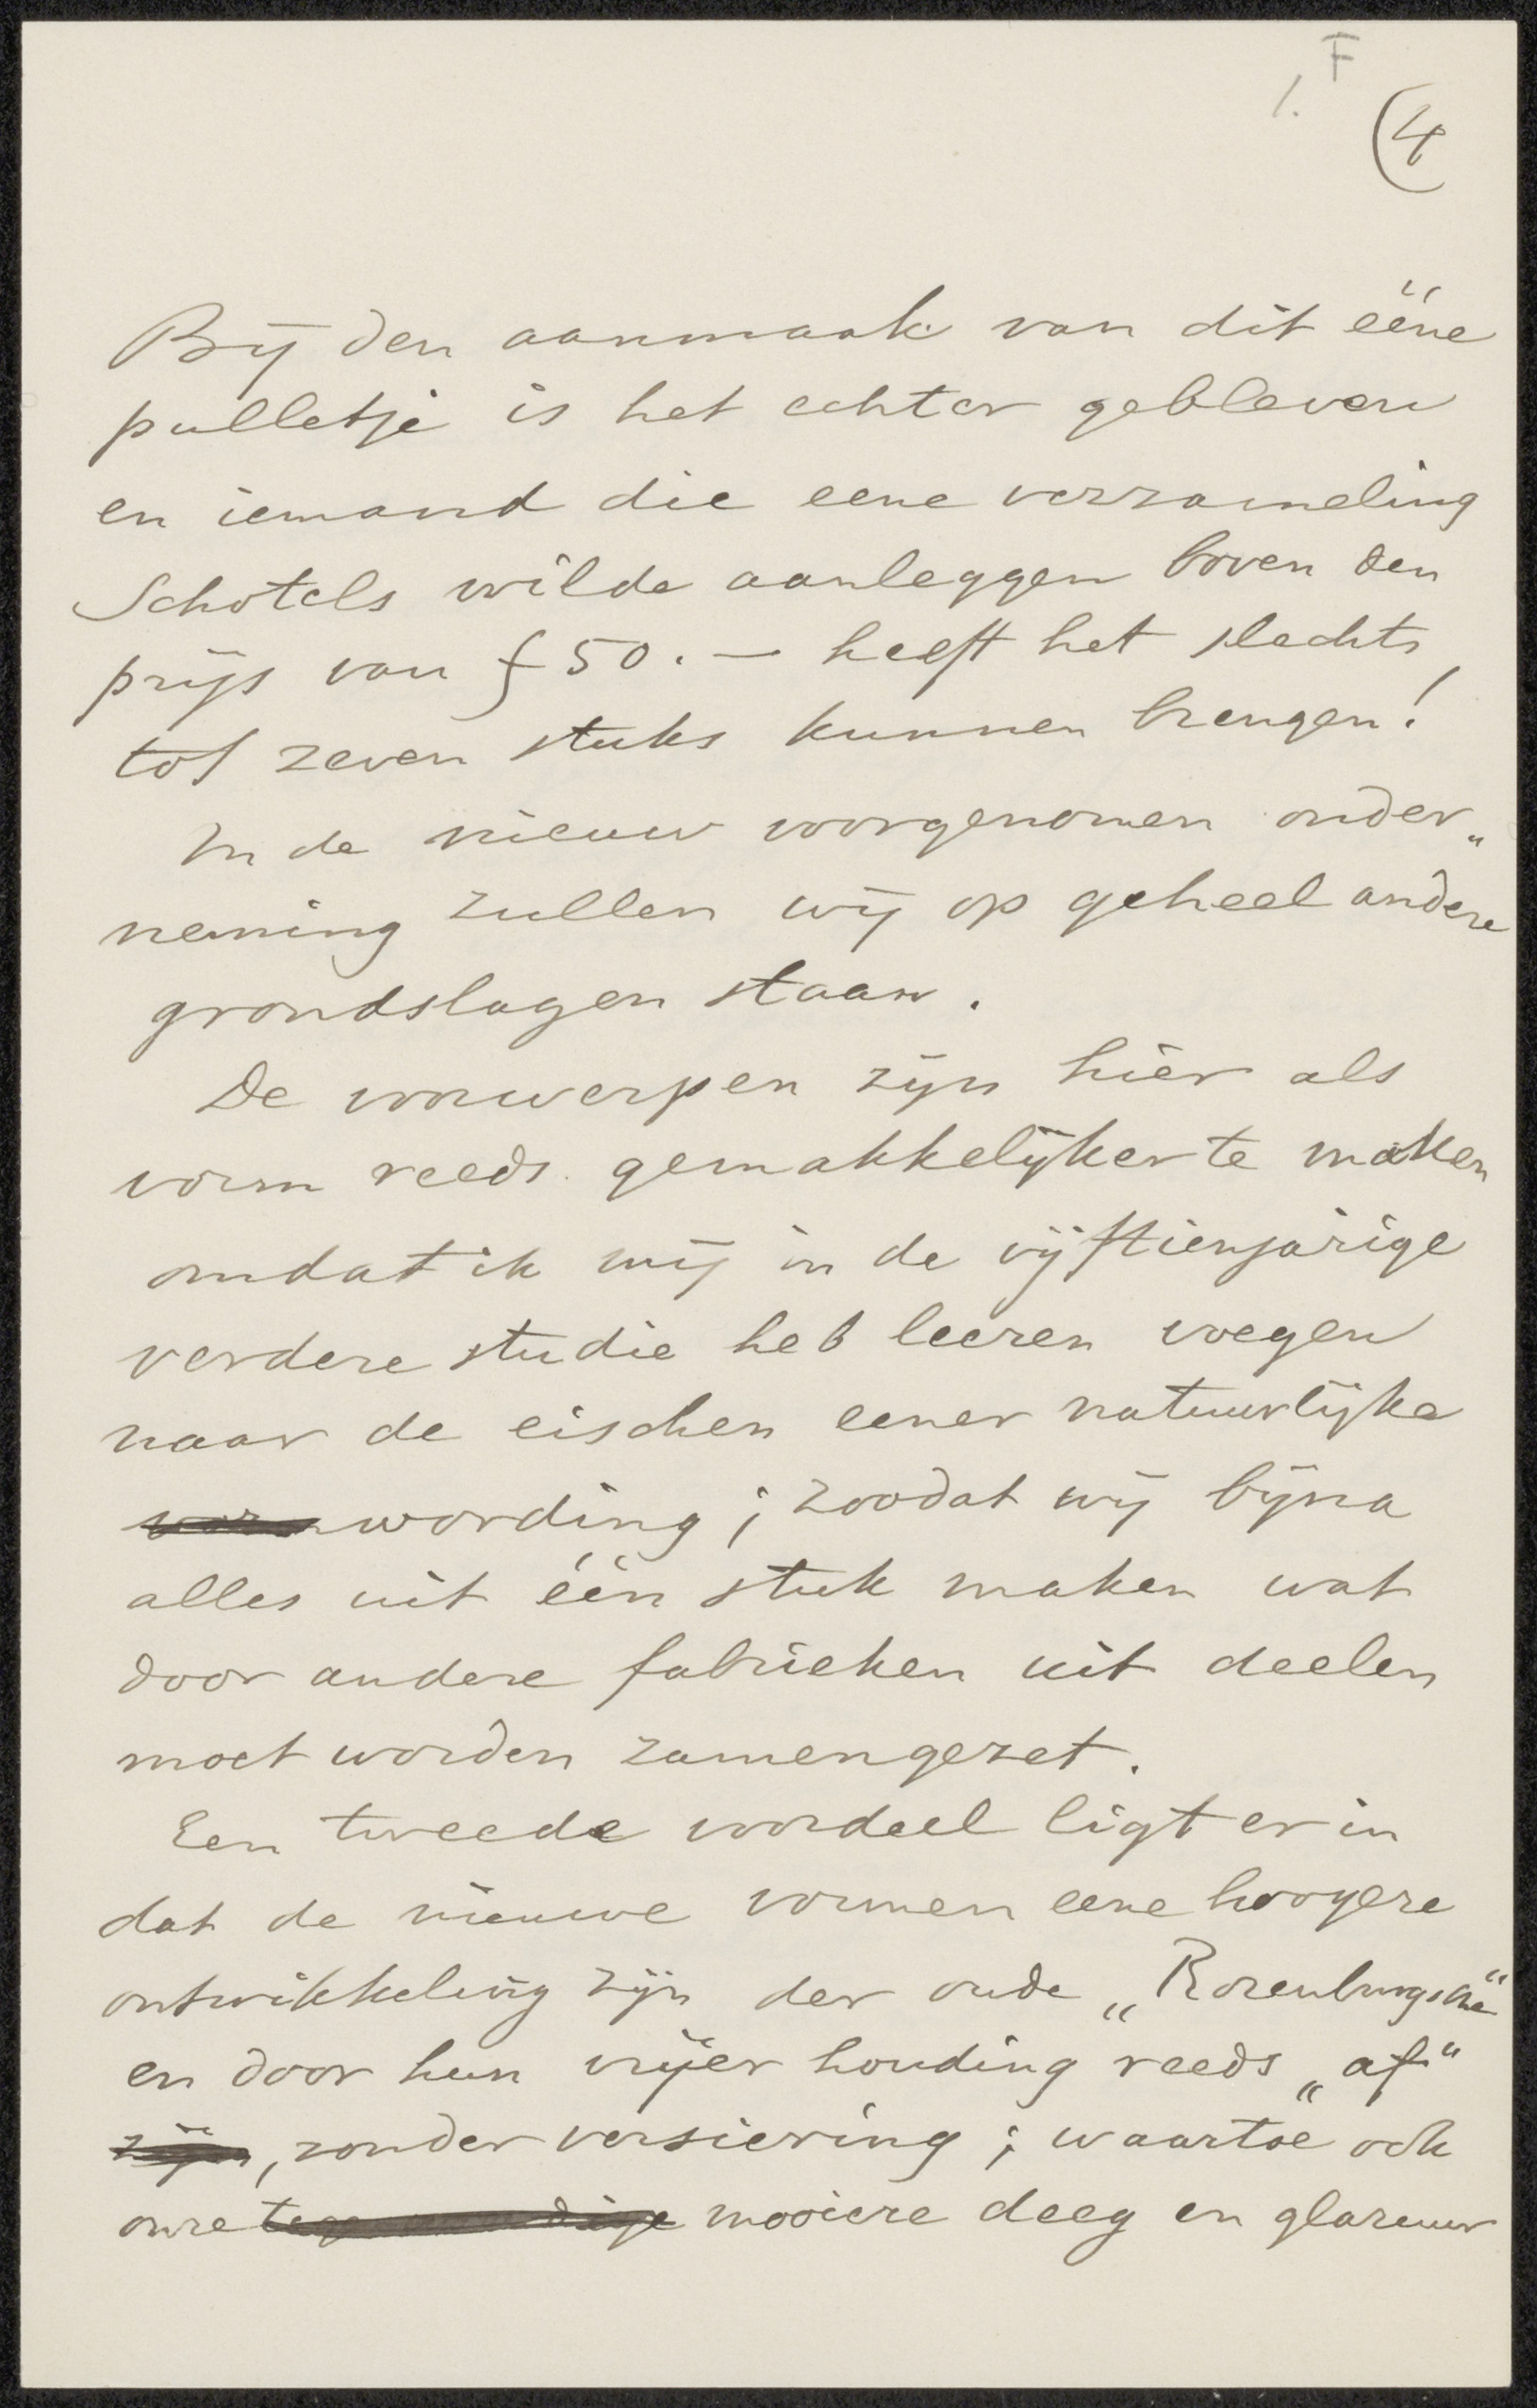 1. F
(4
Bij den aanmaak van dit ééne
pulletje is het echter gebleven
en iemand die eene verzameling
Schotels wilde aanleggen boven den
prijs van f 50. — heeft het slechts
tot zeven stuks kunnen brengen!
In de nieuw voorgenomen onder„
neming zullen wij op geheel andere
grondslagen staan.
De voorwerpen zijn hier als
vorm reeds gemakkelijker te maken
omdat ik mij in de vijftienjarige
verdere studie heb leeren voegen
naar de eischen eener natuurlijke
wording; zoodat wij bijna
alles uit één stuk maken wat
door andere fabrieken uit deelen
moet worden zamengezet.
Een tweede voordeel ligt er in
dat de nieuwe vormen eene hoogere
ontwikkeling zijn der oude „Rozenburgsche“
en door hun vrijer houding reeds „af“
zijn, zonder versiering; waartoe ook
onze mooiere deeg en glazuur